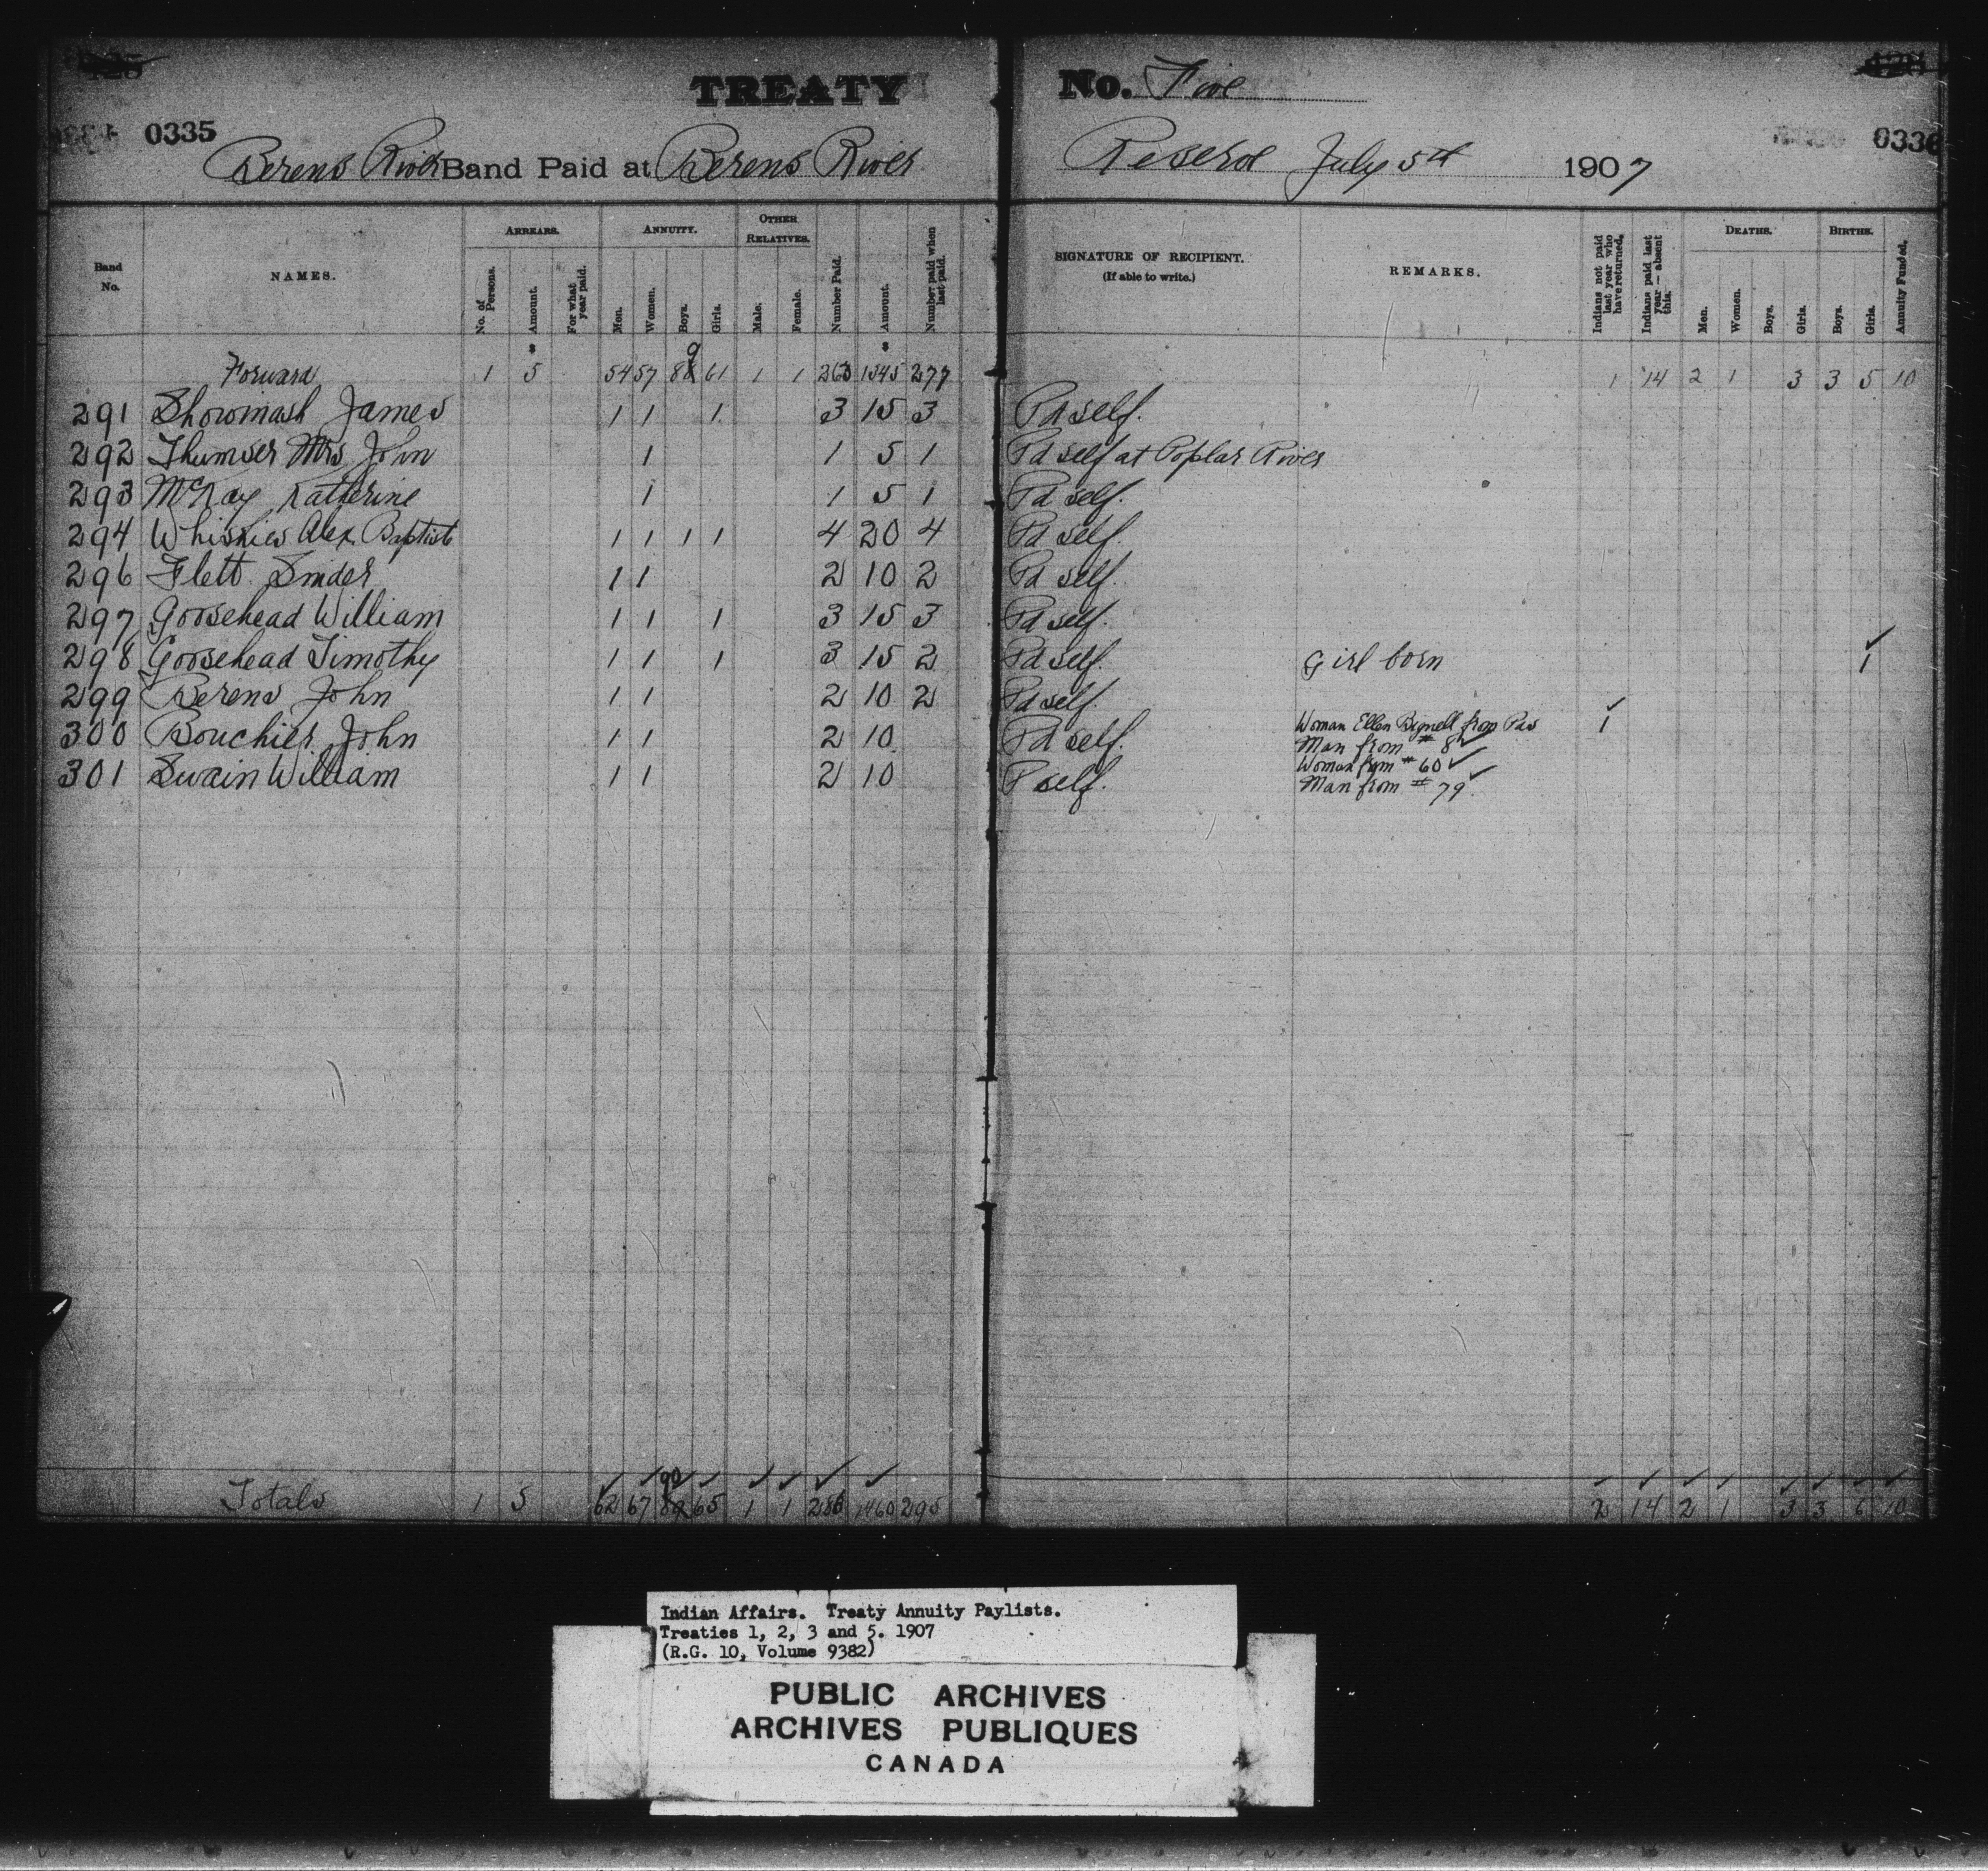 TREATY No. Five
0335 0336
Berens River Band Paid at Berens River Reserve July 5th 1907
Band No. NAMES. ARREARS. No. of Persons. Amount. For what year paid. ANNUITY. Men. Women. Boys. Girls. OTHER RELATIVES. Male. Female. Number Paid. Amount. Number paid when last paid. SIGNATURE OF RECIPIENT. (If able to write.) REMARKS. Indians not paid last year who have returned. Indians paid last year — absent this. DEATHS. Men. Women. Boys. Girls. BIRTHS. Boys. Girls. Annuity Funded.
$ $
Forward 1 5 54 57 89 61 1 1 263 1345 277 1 14 2 1 3 3 5 10
291 Showinash James 1 1 1 3 15 3 Pd self.
292 Mrs John 1 1 5 1 Pd self at Poplar River
293 McKay Katherine 1 1 5 1 Pd self.
294 Whiskies Alex Baptiste 1 1 1 1 4 20 4 Pd self.
296 Flett Snider 1 1 2 10 2 Pd self.
297 Goosehead William 1 1 1 3 15 3 Pd self.
298 Goosehead Timothy 1 1 1 3 15 2 Pd self. Girl born 1
299 Berens John 1 1 2 10 2 Pd self.
300 Bouchier John 1 1 2 10 Pd self. Woman Ellen Bignell from Pas 1
Man from # 8
301 Swain William 1 1 2 10 P self. Woman from # 60
Man from # 79
Totals 1 5 62 67 90 65 1 1 286 1460 295 2 14 2 1 3 3 6 10
Indian Affairs. Treaty Annuity Paylists.
Treaties 1, 2, 3 and 5. 1907
(R.G. 10, Volume 9382)
PUBLIC ARCHIVES
ARCHIVES PUBLIQUES
CANADA